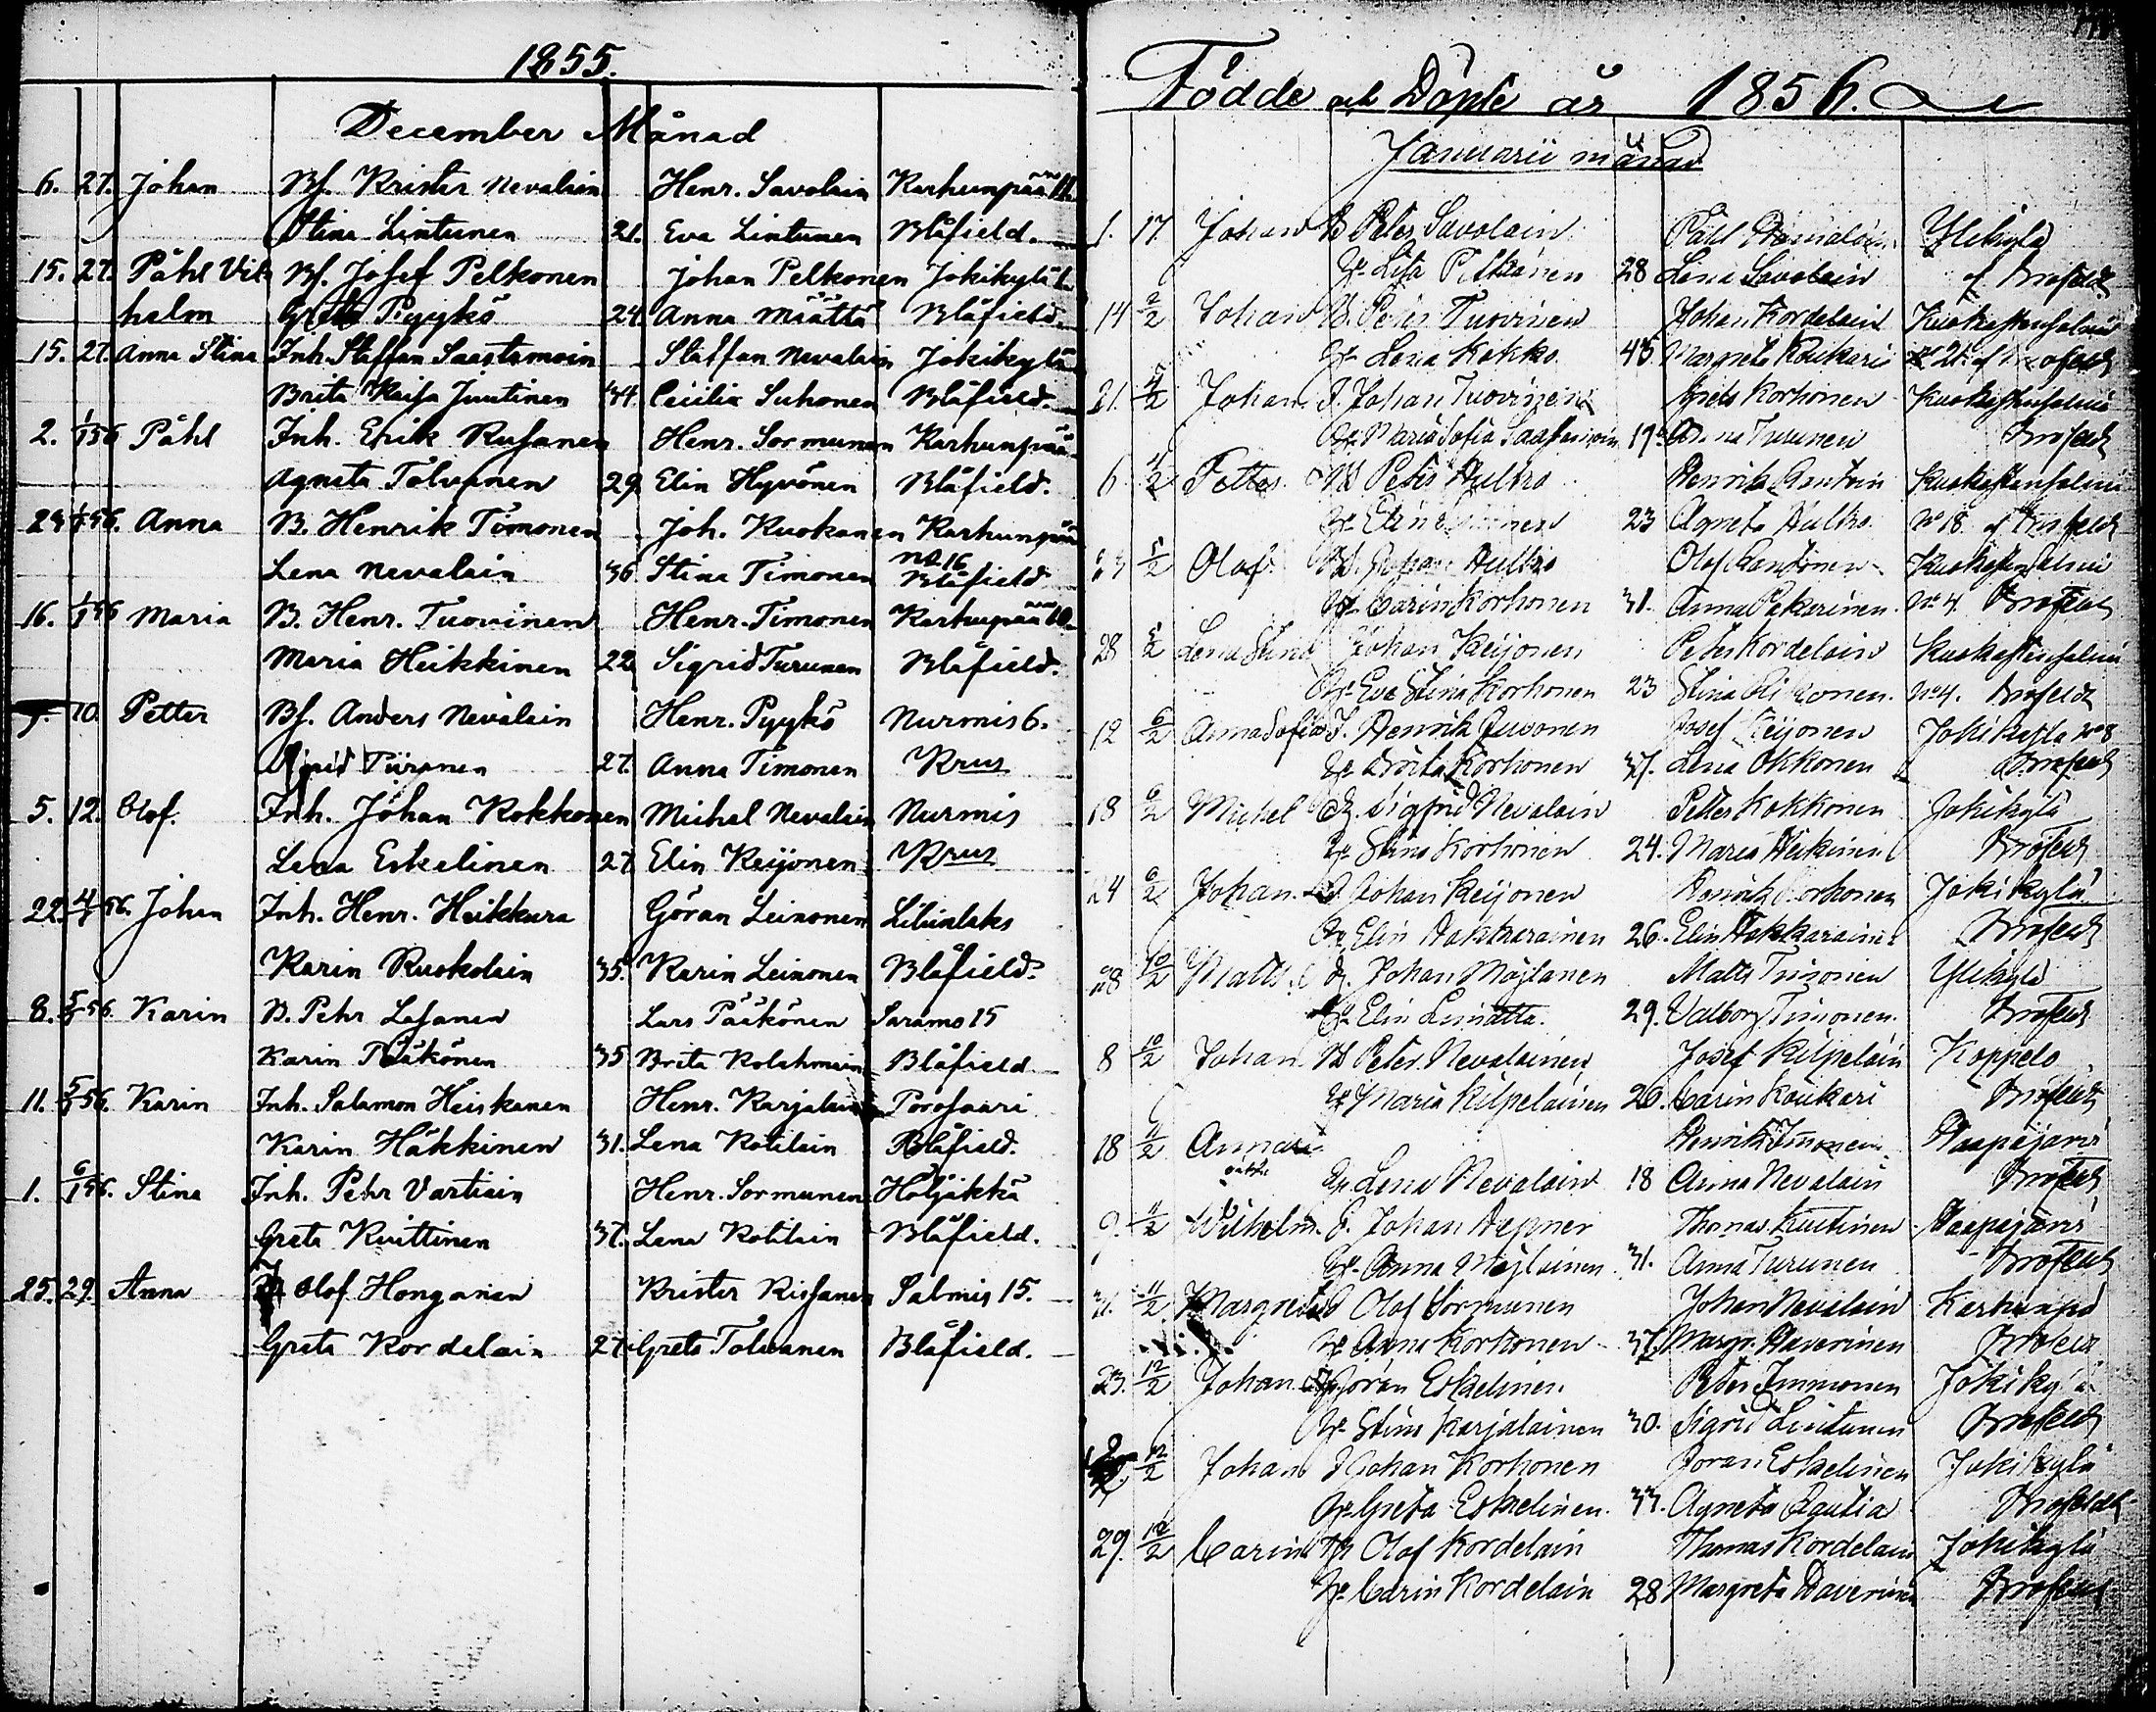 1855.
December Månad
6. 27. Johan Bf. Krister Nevalain Henr. Savolain Karhunpää 11.
Stina Lintunen 21. Eva Lintunen Blåfield.
15. 27. Påhl Vil Bf. Josef Pelkonen Johan Pelkonen Jokikylä 1.
helm Greta Pyykö 24. Anna Määttä Blåfield.
15. 27. Anna Stina Inh. Staffan Saastamoin Staffan Nevalain Jokikylä
Brita Kaisa Juutinen 34. Cicilia Suhonen Blåfield.
2. 1/1 56 Påhl Inh. Erik Rusanen Henr. Sormunen Karhunpää
Agneta Tolvanen 29. Elin Hyvönen Blåfield.
29 1/1 56. Anna B. Henrik Timonen Joh. Kuokanen Karhunpää
Lena Nevalain 36. Stina Timonen no 16 Blåfield
16. 1/1 56 Maria B. Henr. Tuovinen Henr. Timonen Karhupää 10.
Maria Heikkinen 22. Sigrid Turunen Blåfield.
10. Petter Bf. Anders Nevalain Henr. Pyykö Nurmis 6.
Tiiranen 27. Anna Timonen Krus
5. 12. Olof. Inh. Johan Kokkonen Michel Nevalain Nurmis
Lena Eskelinen 27. Elin Keijonen Krus
22. 4/1 56. Johan Inh. Henr. Heikkura Göran Leinonen
Karin Ruokolain 35. Karin Leinonen Blåfield.
8. 5/1 56. Karin B. Pehr Lasanen Lars Pääkönen Saramo 15
Karin Pääkönen 35 Brita Kolehmain Blåfield
11. 5/1 56. Karin Inh. Salamon Heiskanen Henr. Karjalain Porosaari
Karin Häkkinen 31. Lena Kotilain Blåfield.
1. 6/1 56. Stina Inh. Pehr Vartiain Henr. Sormunen Höljäkkä
Greta Kuittinen 37. Lena Kotilain Blåfield.
25. 29. Anna Olof Honganen Krister Risanen Salmis 15.
Greta Kordelain 27. Greta Tolvanen Blåfield.
Födde och Döpte år 1856.
Januarii månad
1. 17. Johan B Peter Savolain Påhl Ylikylä
Hr. Lisa Pitkänen 28 Lena Savolain af Brofeldt
14 2/2 Johan B. Peter Tuovinen Johan Kordelain Kuokastensalmi
Hr. Lena Kokko 45. Margreta Koukari 21. af
21. 4/2 Johan. I. Johan Tuovinen Korhonen Kuokastensalmi
Hr. Maria Sofia Saastamoin 19. Anna Turunen Brofeldt
6 4/2 Petter B Peter Hultro Henrik Kuokastensalmi
Hr. 23 Agneta Hultro No 18. af Brofeldt
5/2 Olof. B. Hultro Olof Kuokastensalmi
Hr. Carin Korhonen 31. Anna Pakarinen. No 4. Brofeldt
28 5/2 Lena Stina Johan Keijonen Peter Kordelain Kuokastensalmi
Hr. Eva Stina Korhonen 23 Stina No 4. Brofeldt
12 6/2 Anna Sofia I. Henrik Juvonen Josef Keijonen Jokikylä No 8
Hr. Brita Korhonen 37. Lena Okkonen Brofeldt
18 6/2 Michel Sigfrid Nevalain Petter Kokkonen Jokikylä
Hr. Stina Korhonen 24. Maria Heikinen Brofeldt
24 6/2 Johan. Johan Keijonen Henrik Korhonen Jokikylä
Hr. Elin Hakkarainen 26. Elin Hakkarainen Brofeldt
28 10/2 Matts. Johan Möjlanen Matts Timonen Ylikylä
Hr. Elin Limatta. 29. Valborg Timonen. Brofeldt
8 10/2 Johan B Peter Nevalainen Josef Kilpeläin Koppelo
Hr Maria Kilpeläinen 26. Carin Koukari Brofeldt
18 11/2 Anna oäkta Henrik Immonen Haapajärvi
Hr. Lena Nevalain 18 Anna Nevalain Brofeldt
9. 11/2 Wilhelm. Johan Hepner Thomas Kuitinen Haapajärvi
Hr. Anna Möjlainen 31. Anna Turunen Brofeldt
31. 11/2 Margreta Olof Sormunen Johan Nevalain Karhunpä
Hr. Anna Korhonen 37. Margr. Haverinen Brofeldt
23. 12/2 Johan Göran Eskelinen. Peter Immonen Jokikylä
Hr. Stina Karjalainen 30. Sigrid Lintunen Brofeldt
12/2 Johan I Johan Korhonen Göran Eskelinen Jokikylä
Hr. Greta Eskelinen. 33. Agneta Rautia Brofeldt
29. 12/2 Carin Olof Kordelain Thomas Kordelain Jokikylä
Hr. Carin Kordelain 28 Margreta Haverinen Brofeldt